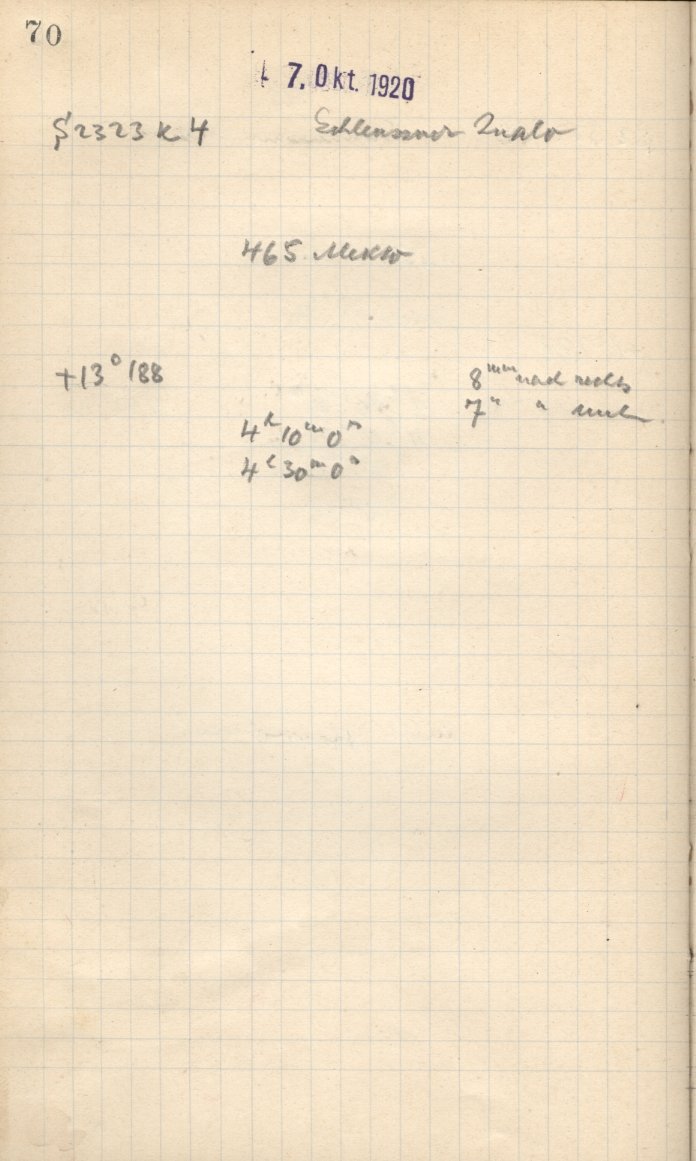 70
7. Okt. 1920
S 2323 K 4 Schleussner
465 Alekto
+13° 188
8ᵐᵐ nach rechts
7 " "
4ʰ 10ᵐ 0ˢ
4ʰ 30ᵐ 0ˢ